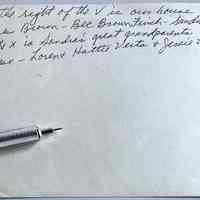 the right of the V is our house
Brown - Bec Brown Finch - Sandra
x is Sandra's great grandparents
- Lorent Hattie Verta & Jessie